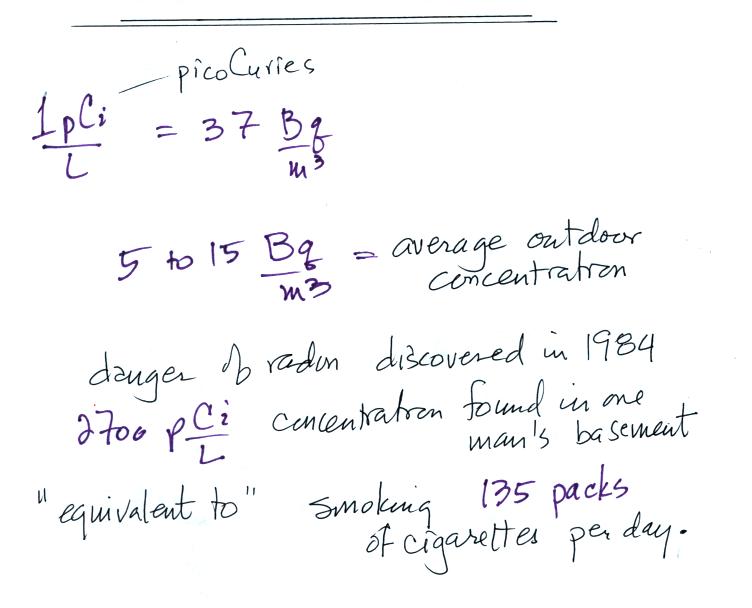 picoCuries
1 pCi/L = 37 Bq/m³
5 to 15 Bq/m3 = average outdoor
concentration
danger of radon discovered in 1984
2700 pCi/L concentration found in one
man's basement
"equivalent to" smoking 135 packs
of cigarettes per day.